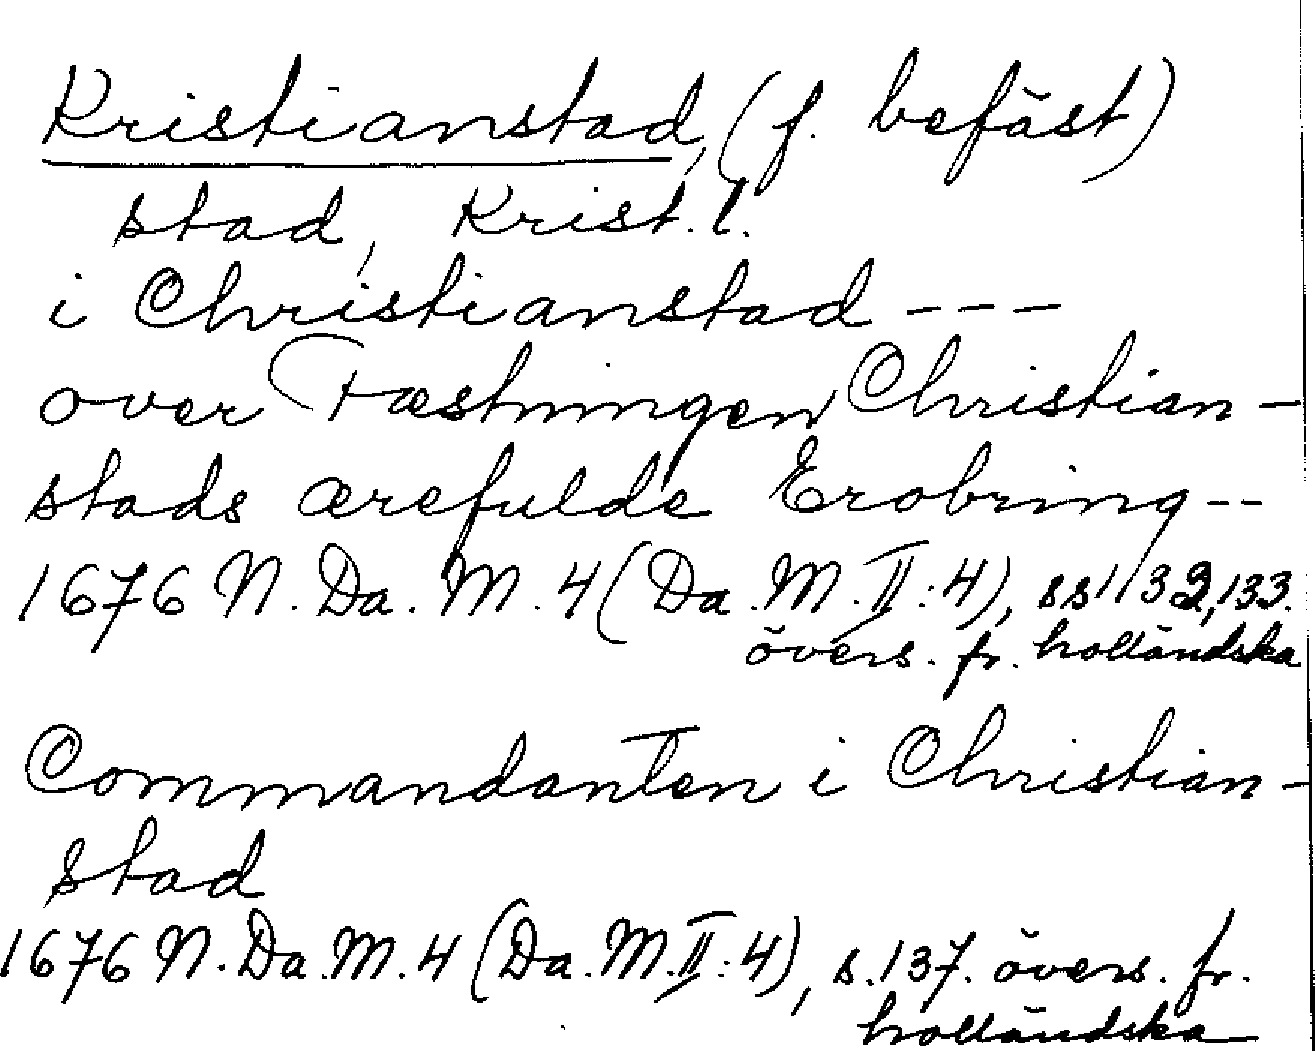 Kristianstad, (f. befäst)
stad, Krist. l.
i Christianstad ---
over Fæstningen Christian-
stads ærefulde Erobring --
1676 N. Da. M. 4 (Da. M. II: 4), ss 132, 133.
övers. fr. holländska
Commandanten i Christian-
stad
1676 N. Da. M. 4 (Da. M. II: 4), s. 137. övers. fr.
holländska